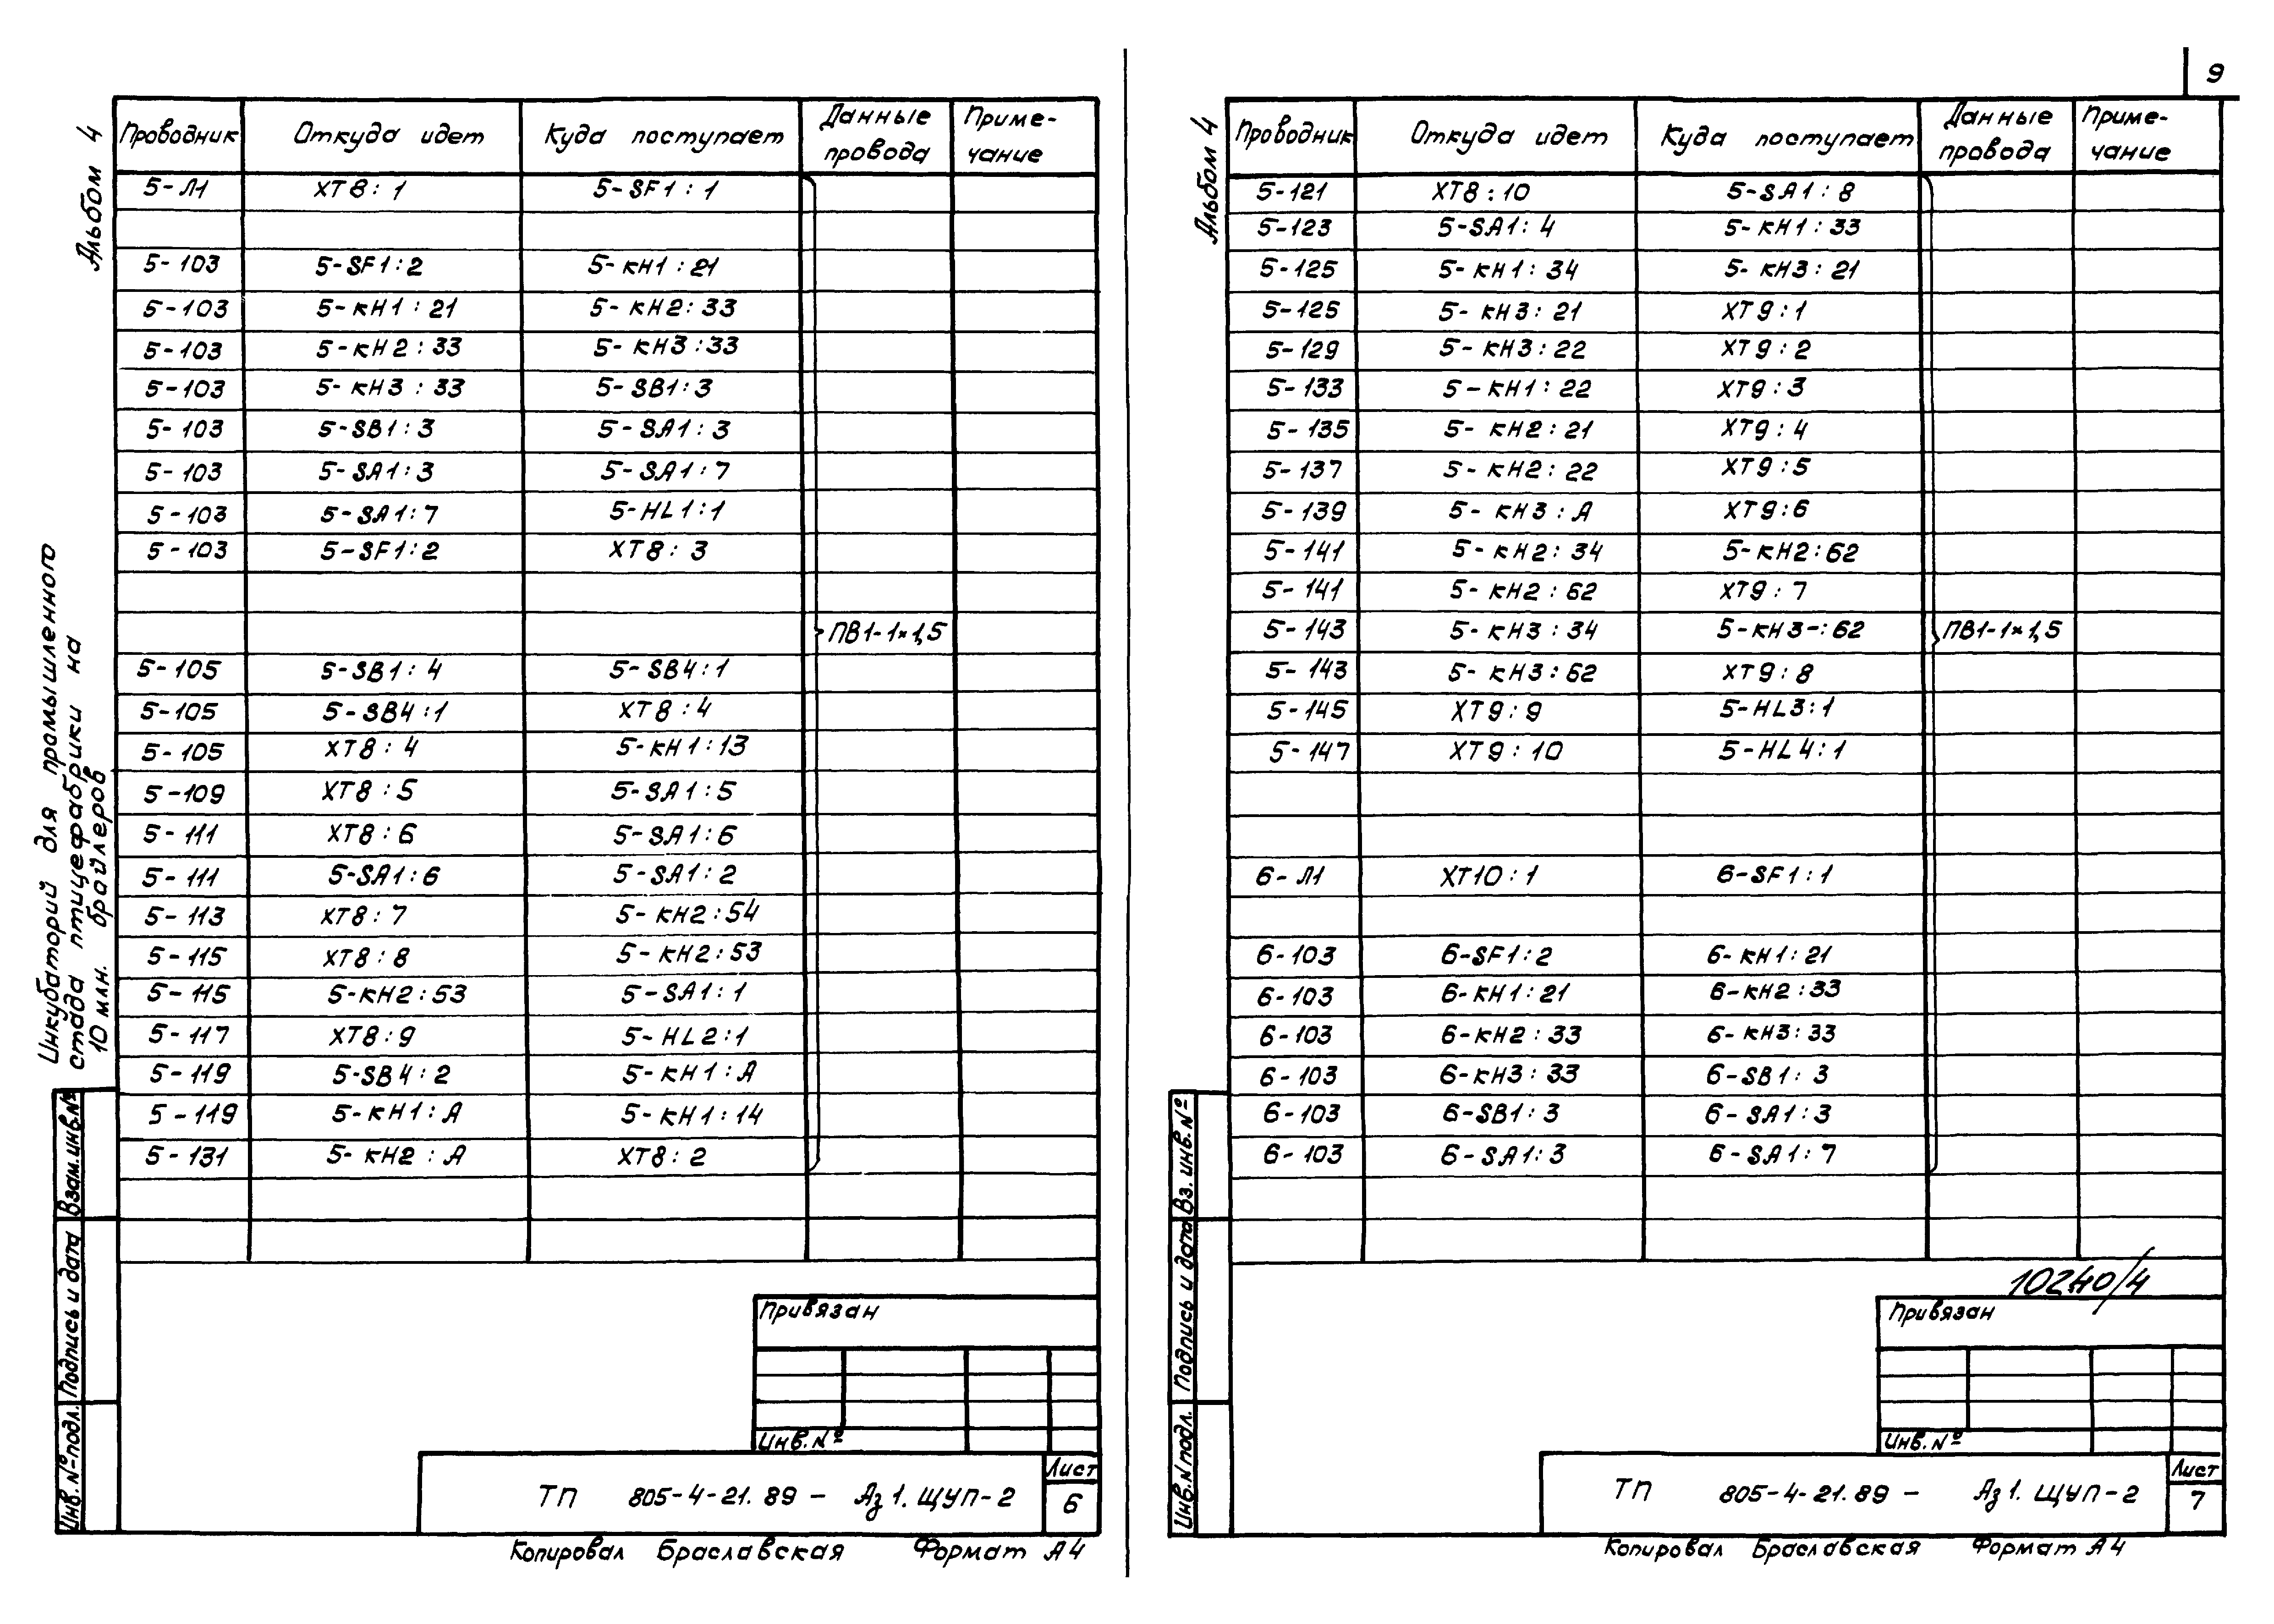 9
Альбом 4
Проводник Откуда идет Куда поступает Данные провода Приме-чание
5-Л1 XT8:1 5-SF1:1
5-103 5-SF1:2 5-КН1:21
5-103 5-КН1:21 5-КН2:33
5-103 5-КН2:33 5-КН3:33
5-103 5-КН3:33 5-SB1:3
5-103 5-SB1:3 5-SA1:3
5-103 5-SA1:3 5-SA1:7
5-103 5-SA1:7 5-HL1:1
5-103 5-SF1:2 XT8:3
ПВ1-1×1,5
5-105 5-SB1:4 5-SB4:1
5-105 5-SB4:1 XT8:4
5-105 XT8:4 5-КН1:13
5-109 XT8:5 5-SA1:5
5-111 XT8:6 5-SA1:6
5-111 5-SA1:6 5-SA1:2
5-113 XT8:7 5-КН2:54
5-115 XT8:8 5-КН2:53
5-115 5-КН2:53 5-SA1:1
5-117 XT8:9 5-HL2:1
5-119 5-SB4:2 5-КН1:А
5-119 5-КН1:А 5-КН1:14
5-131 5-КН2:А XT8:2
Инкубаторий для промышленного
стада птицефабрики на
10 млн. бройлеров
Взам.инв.№
Подпись и дата
Инв.№подл.
Привязан
Инв.№
ТП 805-4-21.89 - Аз1.ЩУП-2
Лист
6
Копировал Браславская Формат А4
Альбом 4
Проводник Откуда идет Куда поступает Данные провода Приме-чание
5-121 XT8:10 5-SA1:8
5-123 5-SA1:4 5-КН1:33
5-125 5-КН1:34 5-КН3:21
5-125 5-КН3:21 XT9:1
5-129 5-КН3:22 XT9:2
5-133 5-КН1:22 XT9:3
5-135 5-КН2:21 XT9:4
5-137 5-КН2:22 XT9:5
5-139 5-КН3:А XT9:6
5-141 5-КН2:34 5-КН2:62
5-141 5-КН2:62 XT9:7
5-143 5-КН3:34 5-КН3-:62 ПВ1-1×1,5
5-143 5-КН3:62 XT9:8
5-145 XT9:9 5-HL3:1
5-147 XT9:10 5-HL4:1
6-Л1 XT10:1 6-SF1:1
6-103 6-SF1:2 6-КН1:21
6-103 6-КН1:21 6-КН2:33
6-103 6-КН2:33 6-КН3:33
6-103 6-КН3:33 6-SB1:3
6-103 6-SB1:3 6-SA1:3
6-103 6-SA1:3 6-SA1:7
10240/4
Вз.инв.№
Подпись и дата
Инв.N подл.
Привязан
Инв.№
ТП 805-4-21.89 - Аз1.ЩУП-2
Лист
7
Копировал Браславская Формат А4